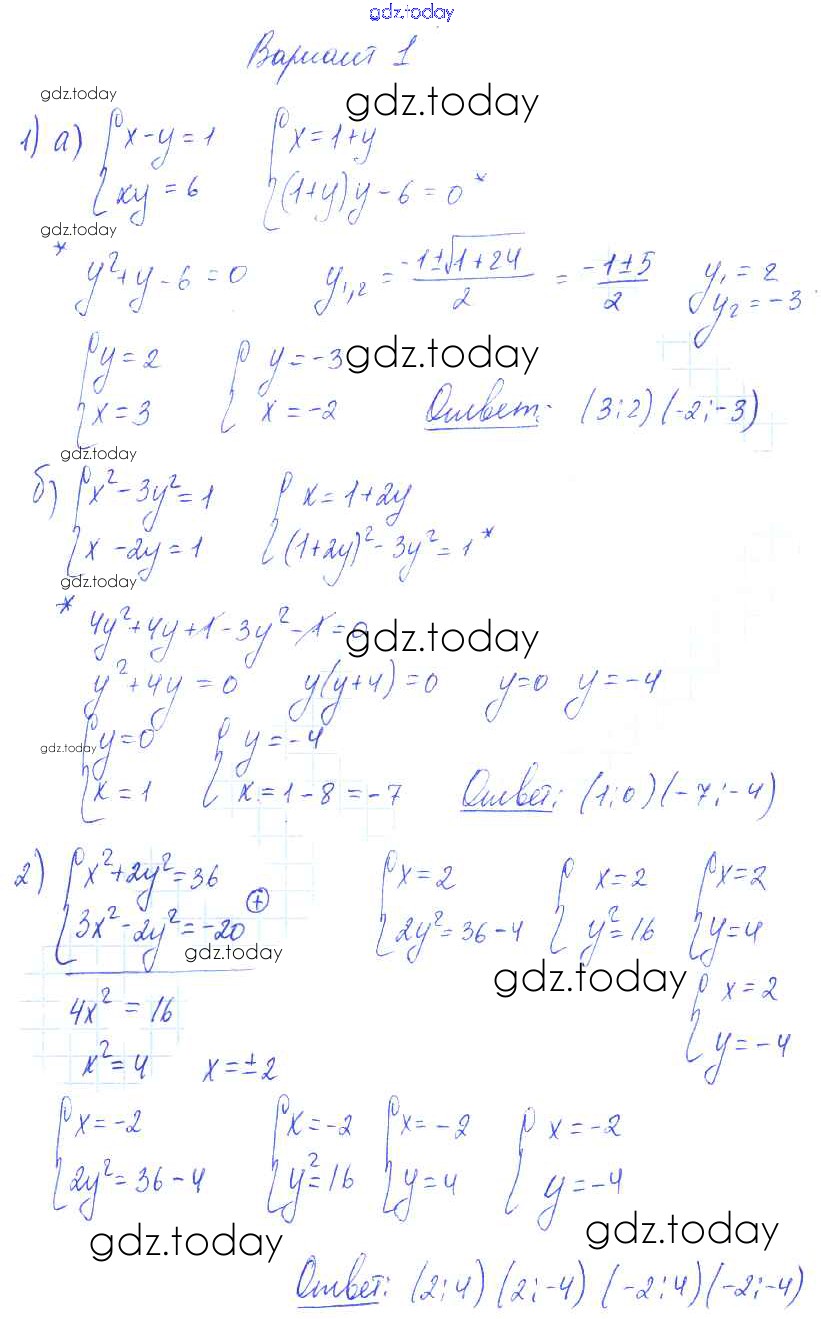 gdz.today
Вариант 1
gdz.today gdz.today
1) а) { x-y=1 { x=1+y
{ xy=6 { (1+y)y-6=0*
gdz.today
* y²+y-6=0 y₁,₂ = (-1±√(1+24))/2 = (-1±5)/2 y₁=2
y₂=-3
{ y=2 { y=-3 gdz.today
{ x=3 { x=-2 Ответ: (3;2) (-2;-3)
gdz.today
б) { x²-3y²=1 { x=1+2y
{ x-2y=1 { (1+2y)²-3y²=1*
gdz.today
* 4y²+4y+1-3y²-1=0 gdz.today
y²+4y=0 y(y+4)=0 y=0 y=-4
gdz.today { y=0 { y=-4
{ x=1 { x=1-8=-7 Ответ: (1;0) (-7;-4)
2) { x²+2y²=36 { x=2 { x=2 { x=2
{ 3x²-2y²=-20 ⊕ { 2y²=36-4 { y²=16 { y=4
gdz.today gdz.today
4x²=16 { x=2
x²=4 x=±2 { y=-4
{ x=-2 { x=-2 { x=-2 { x=-2
{ 2y²=36-4 { y²=16 { y=4 { y=-4
gdz.today gdz.today
Ответ: (2;4) (2;-4) (-2;4) (-2;-4)